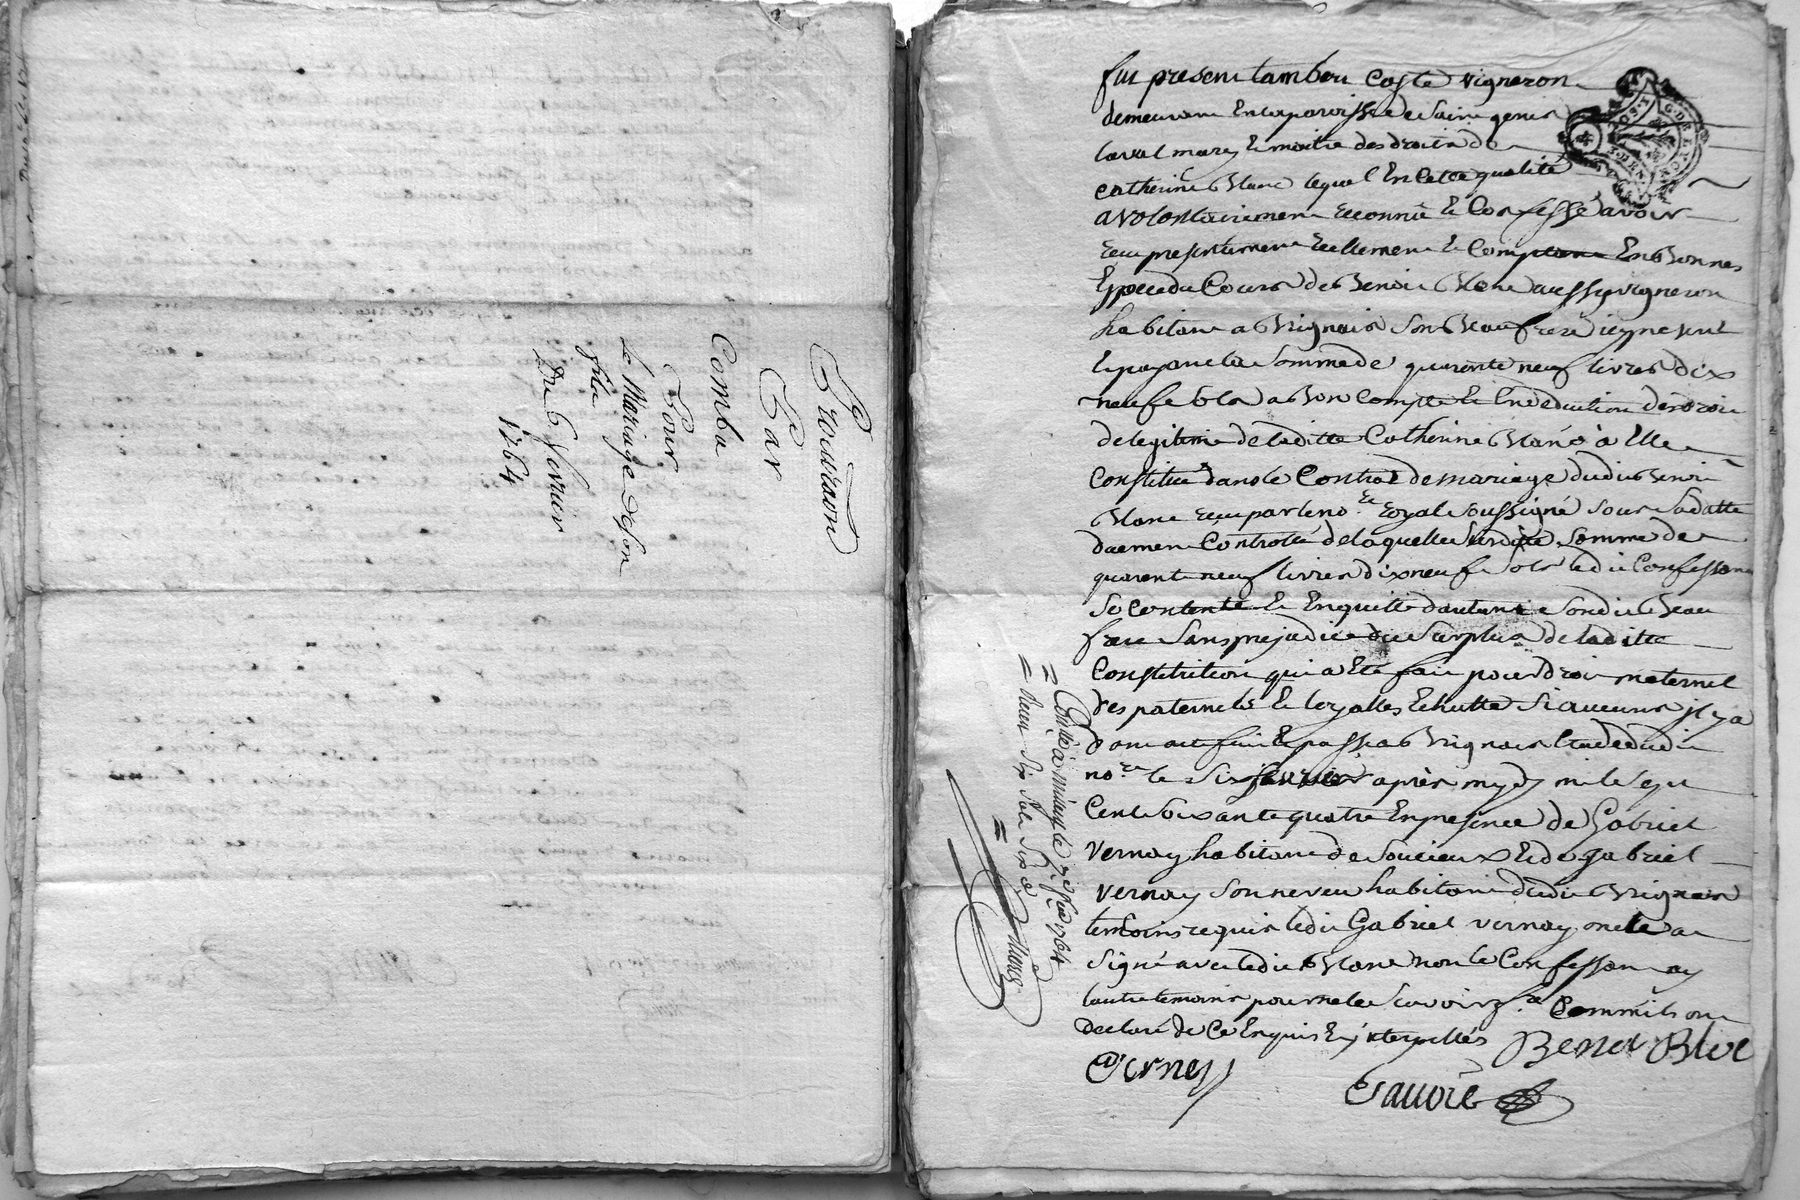 Procuraon
Par
Comba
Pour
le Mariage de son
fils
Du 6 fevrier
1764
fut present lambert Coste vigneron
demeurant En la paroisse de Saint genis
laval mary Et maitre des droits de
Catherine Blanc lequel En Cette qualité
a volontairement reconnu Et Confessé avoir
reçu presentement reellement Et Comptant En Bonnes
Espece du Cours de Benoit Blanc aussy vigneron
habitant a Brignais Son Beau frere icy present
Et payant la Somme de quarente neuf livres dix
neuf sols a Bon Compte Et En deduction des droits
de legitime de laditte Catherine Blanc a Elle
Constitué dans le Contrat de mariage dudit Benoit
Blanc reçu par le no.re royal Soussigné Sous Sa datte
duement Controllé de laquelle Somme de
quarente neuf livres dix neuf Sols ledit Confessant
Se Contente Et En quitte dautant Sondit Beau
frere Sans prejudice du Surplus de laditte
Constitution qui a Eté fait pour droit maternel
des paternels Et loyalles Echutte Si aucuns il y a
Dont acte fait Et passé a Brignais Etude dudit
no.re le Six fevrier après mydy mil Sept
Cent Soixante quatre En presence de Gabriel
Vernay habitant de Soucieux Et de gabriel
Vernay Son neveu habitant dudit Brignais
temoins requis ledit Gabriel vernay oncle a
Signé avec ledit Blanc non le Confessant ny
lautre temoin pour ne le Scavoir
declaré de Ce Enquis Et interpellés
Benoit Blanc
G Verney
Con.llé a le 1764
Reçu Six Sols Six d.